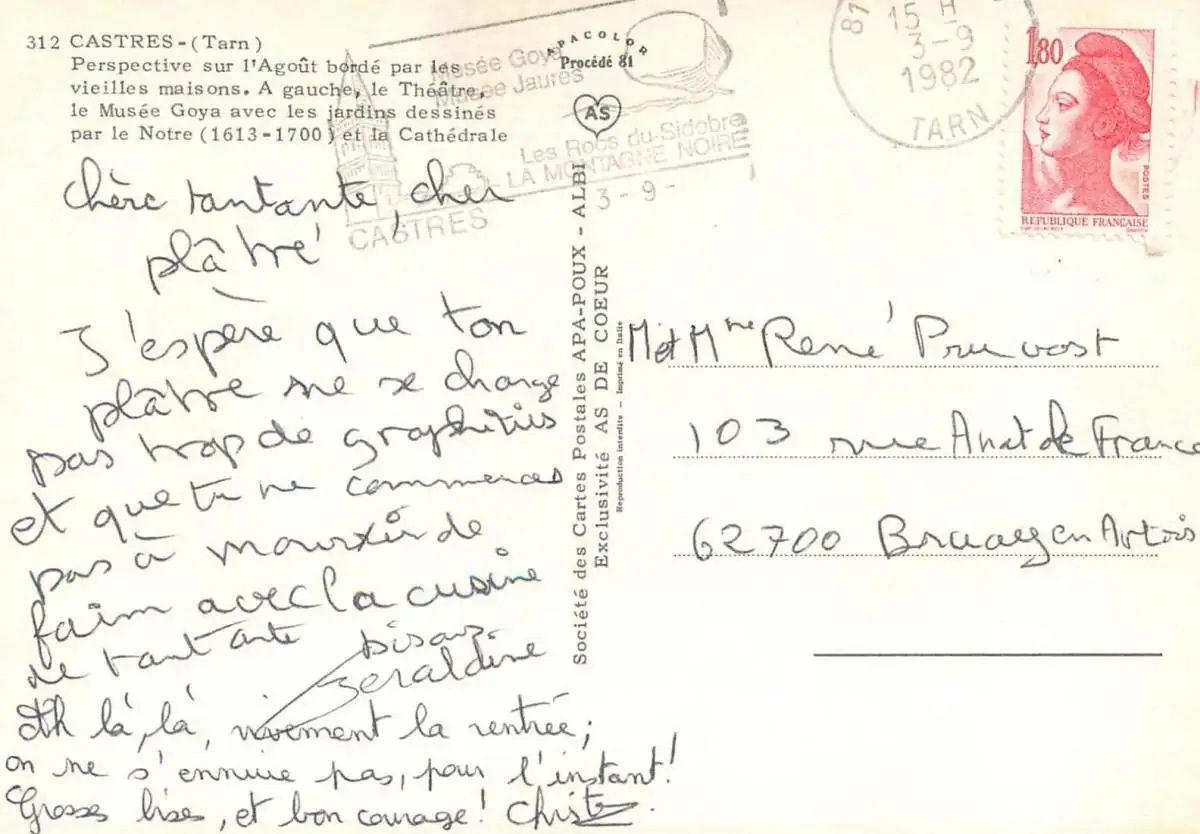 312 CASTRES - (Tarn)
Perspective sur l'Agoût bordé par les
vieilles maisons. A gauche, le Théâtre,
le Musée Goya avec les jardins dessinés
par le Notre (1613-1700) et la Cathédrale
APACOLOR
Procédé 81
AS
Musée Goya
Musée Jaurès
Les Rocs du Sidobre
LA MONTAGNE NOIRE
CASTRES
3-9-
81
15 H
3-9
1982
TARN
1,80
POSTES
REPUBLIQUE FRANÇAISE
chère tantante, cher
plâtré
J'espère que ton
plâtre ne se charge
pas trop de graphitis
et que tu ne commences
pas à mourir de
faim avec la cusine
de tantante
bisous
Geraldine
Ah là, là, vivement la rentrée;
on ne s'ennuie pas, pour l'instant!
Grosses bises, et bon courage!
Société des Cartes Postales APA-POUX - ALBI
Exclusivité AS DE COEUR
Reproduction interdite - Imprimé en Italie
M et Mme René Pruvost
103 rue Anat de France
62700 Bruay en Artois